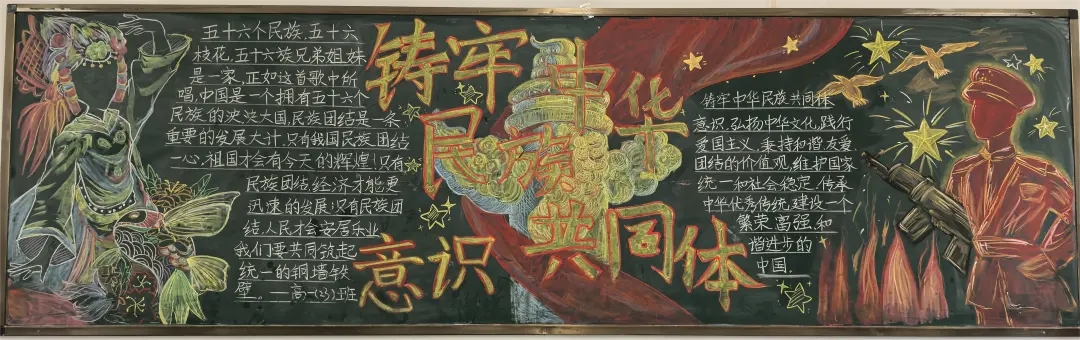 五十六个民族,五十六
枝花,五十六族兄弟姐妹
是一家,正如这首歌中所
唱,中国是一个拥有五十六个
民族的泱泱大国,民族团结是一条
重要的发展大计,只有我国民族团结
一心,祖国才会有今天的辉煌!只有
民族团结,经济才能更
迅速的发展;只有民族团
结,人民才会安居乐业
我们要共同筑起
统一的铜墙铁
壁。——高一(23)班
铸牢中华
民族
共同体
意识
铸牢中华民族共同体
意识,弘扬中华文化,践行
爱国主义,秉持和谐友爱
团结的价值观,维护国家
统一和社会稳定,传承
中华优秀传统,建设一个
繁荣富强,和
谐进步的
中国.